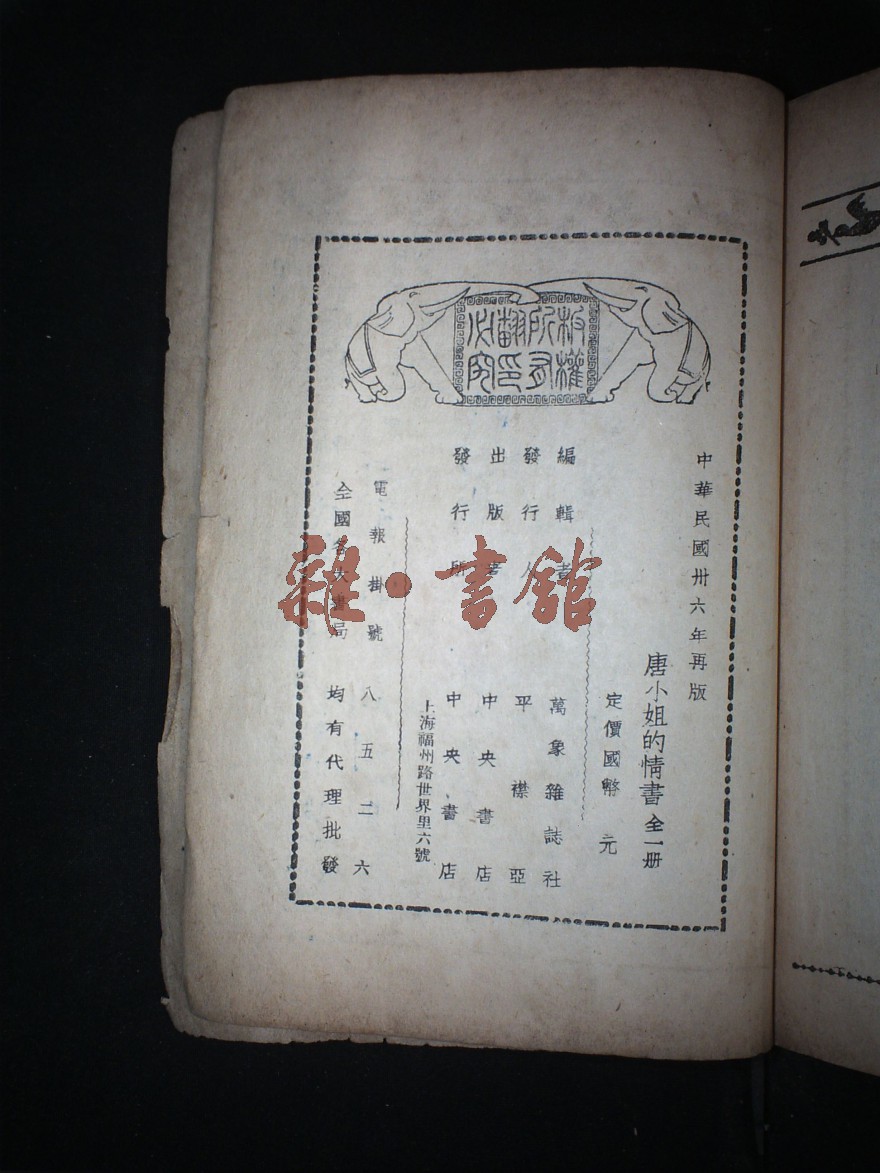 版權
所有
翻印
必究
中華民國卅六年再版
唐小姐的情書 全一册
定價國幣 元
編輯者 萬象雜誌社
發行人 平襟亞
出版者 中央書店
發行所 中央書店
上海福州路世界里六號
電報掛號 八五二六
全國各大書局 均有代理批發
雜·書館